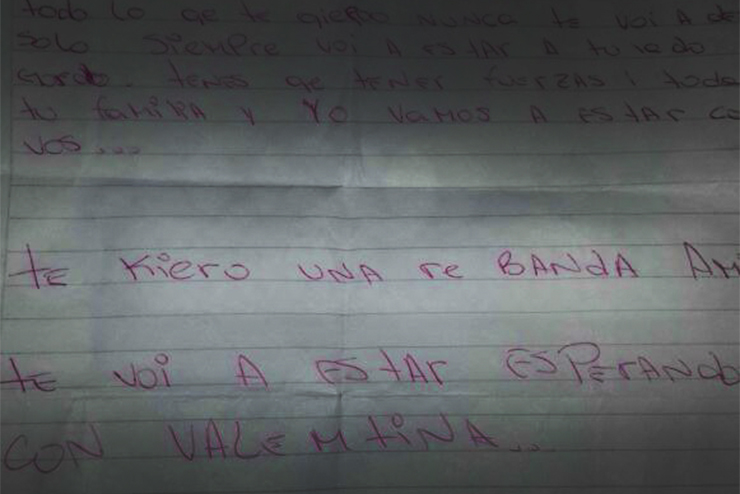 todo lo qe te qierdo NUNCA te voi A de
solo SiemPre voi A estar A tu lado
tenes qe tener fuerzas i toda
tu familia y Yo vamos A estar co
vos....
te Kiero UNA re BANdA Ami
te voi A estar ESPerANdo
CON VALEMtiNA...